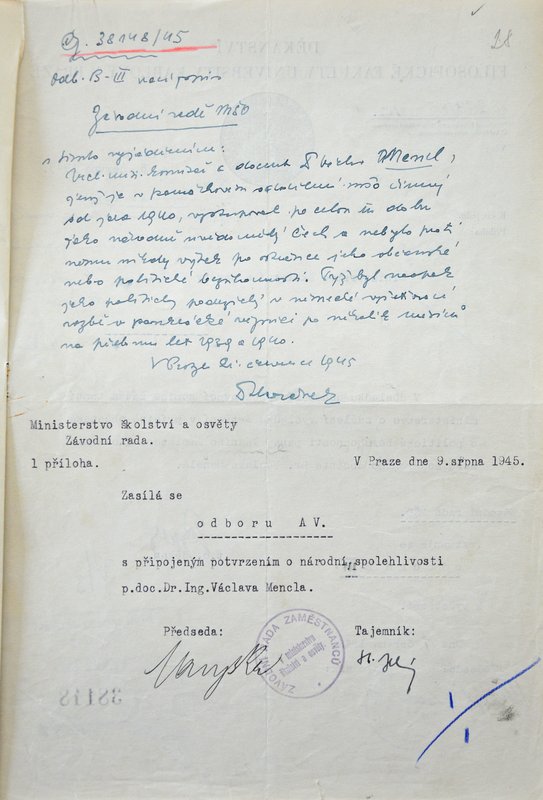 čj. 38148/45
28
odb. B-III
Závodní radě MŠO
s tímto vyjádřením:
Vrch. min. komisař a docent Dr Václav Mencl,
jenž je v památkovém oddělení MŠO činný
od jara 1940, vystupoval po celou tu dobu
jako národně uvědomělý Čech a nebylo proti
němu nikdy výtek po stránce jeho občanské
nebo politické bezúhonnosti. Týž byl naopak
jako politicky podezřelý v německé vyšetřovací
vazbě v pankrácké věznici po několik měsíců
na přelomu let 1939 a 1940.
V Praze 21. července 1945
Ministerstvo školství a osvěty
Závodní rada.
1 příloha.
V Praze dne 9.srpna 1945.
Zasílá se
odboru AV.
s připojeným potvrzením o národní spolehlivosti
p.doc.Dr.Ing.Václava Mencla.
Předseda:
Tajemník:
ZÁVODNÍ RADA ZAMĚSTNANCŮ
v ministerstvu
školství a osvěty.
38148